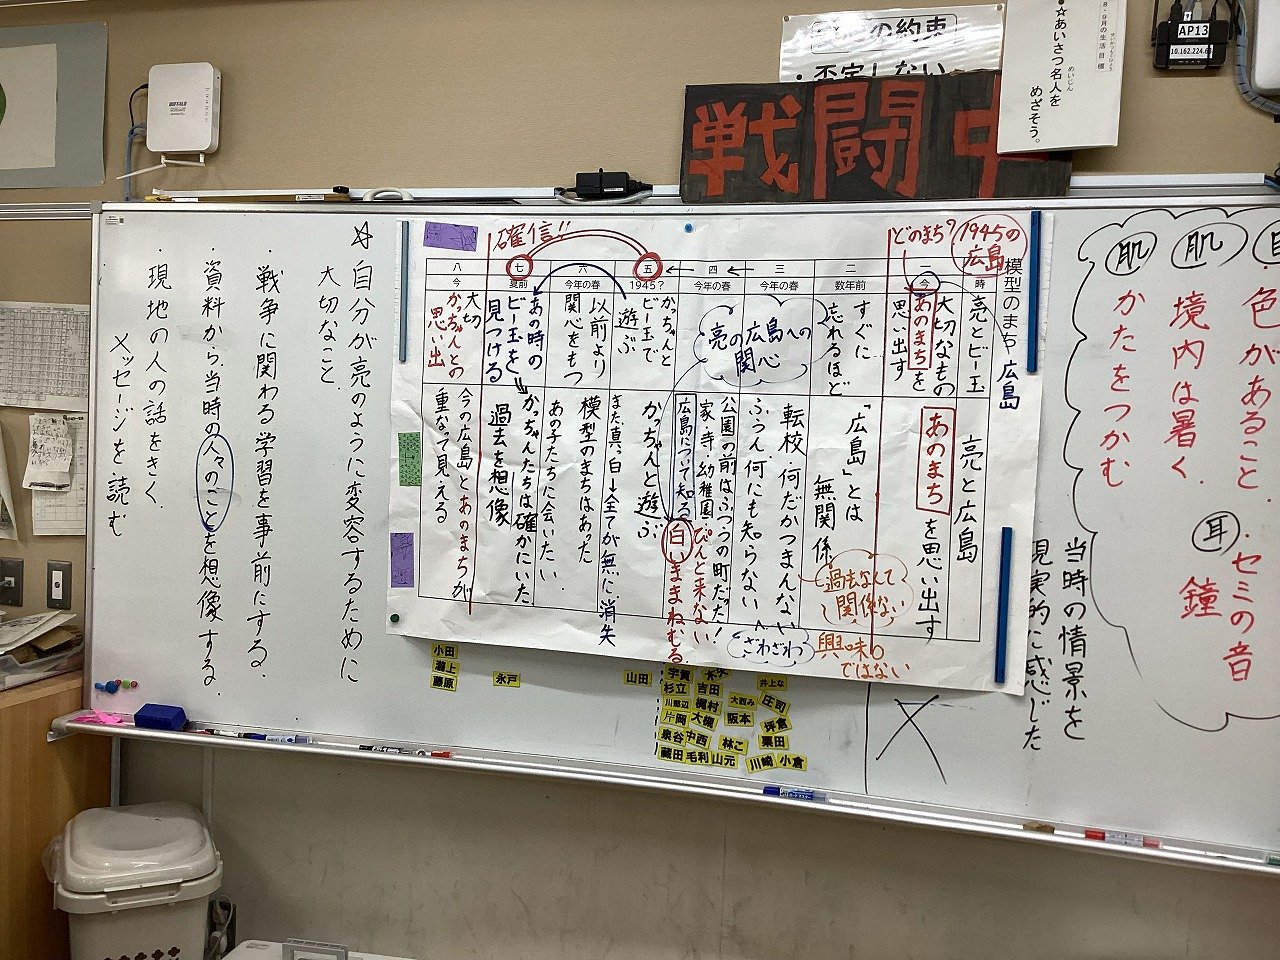 の約束
・否定しない
戦闘中
8・9月の生活目標
☆あいさつ名人を
めいじん
めざそう。
AP13
10.162.224.6
BUFFALO
肌
肌
色があること
境内は暑く
かたをつかむ
・セミの音
耳
鐘
当時の情景を
現実的に感じた
模型のまち 広島
1945の
広島
どのまち?
確信!!
時
一
今
二
数年前
三
今年の春
四
今年の春
五
1945?
六
今年の春
七
夏前
八
今
亮とビー玉
大切なもの
あのまちを
思い出す
すぐに
忘れるほど
広島への
亮の関心
かっちゃんと
ビー玉で
遊ぶ
以前より
関心をもつ
あの時の
ビー玉を
見つける
大切
かっちゃんとの
思い出
亮と広島
あのまちを思い出す
「広島」とは
無関係
過去なんて
関係ない
興味0
ではない
転校、何だかつまんない
ふうん、何にも知らない
ざわざわ
公園の前はふつうの町だった!
家・寺・幼稚園・
ぴんと来ない
広島について知る
白いままねむる
かっちゃんと遊ぶ
また真っ白→全てが無に、消失
模型のまちはあった
あの子たちに会いたい
かっちゃんたちは確かにいた
過去を想像
今の広島とあのまちが
重なって見える
☆自分が亮のように変容するために
大切なこと
・戦争に関わる学習を事前にする。
・資料から当時の人々のことを想像する。
・現地の人の話をきく
メッセージを読む
小田
瀬上
藤原
永戸
山田
宇賀
杉立
吉田
川那辺
梶村
片岡
大槻
泉谷
中西
蔵田
毛利
山元
大西み
阪本
林こ
川崎
小倉
井上な
庄司
坪倉
栗田